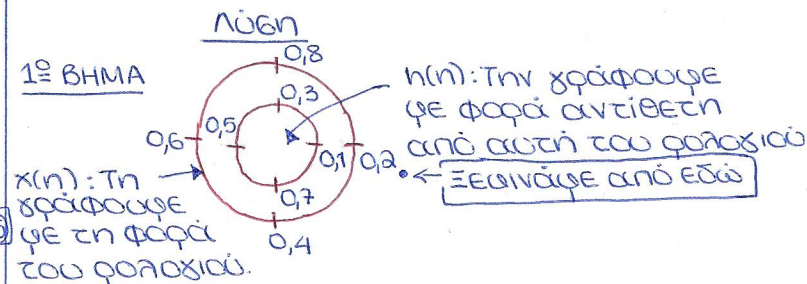 ΛΥΣΗ
1º ΒΗΜΑ
0,8
0,3
0,6
0,5
0,1
0,2
0,7
0,4
h(n): Την γράφουμε
με φορά αντίθετη
από αυτή του ρολογιού
Ξεκινάμε από εδώ
x(n): Τη
γράφουμε
με τη φορά
του ρολογιού.